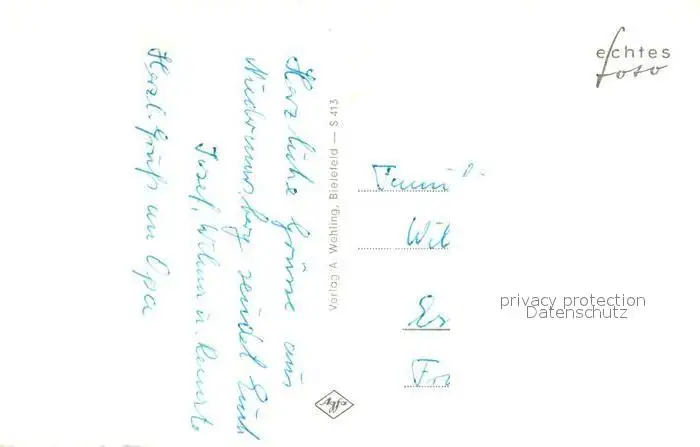 echtes
foto
Herzliche Grüsse aus
Niedermarsberg sendet Euch
Josef, Wilma u.
Herzl. Gruß an Opa
Verlag A. Wehling, Bielefeld — S 413
Famili
Wil
Es
Fra
privacy protection
Datenschutz
Agfa